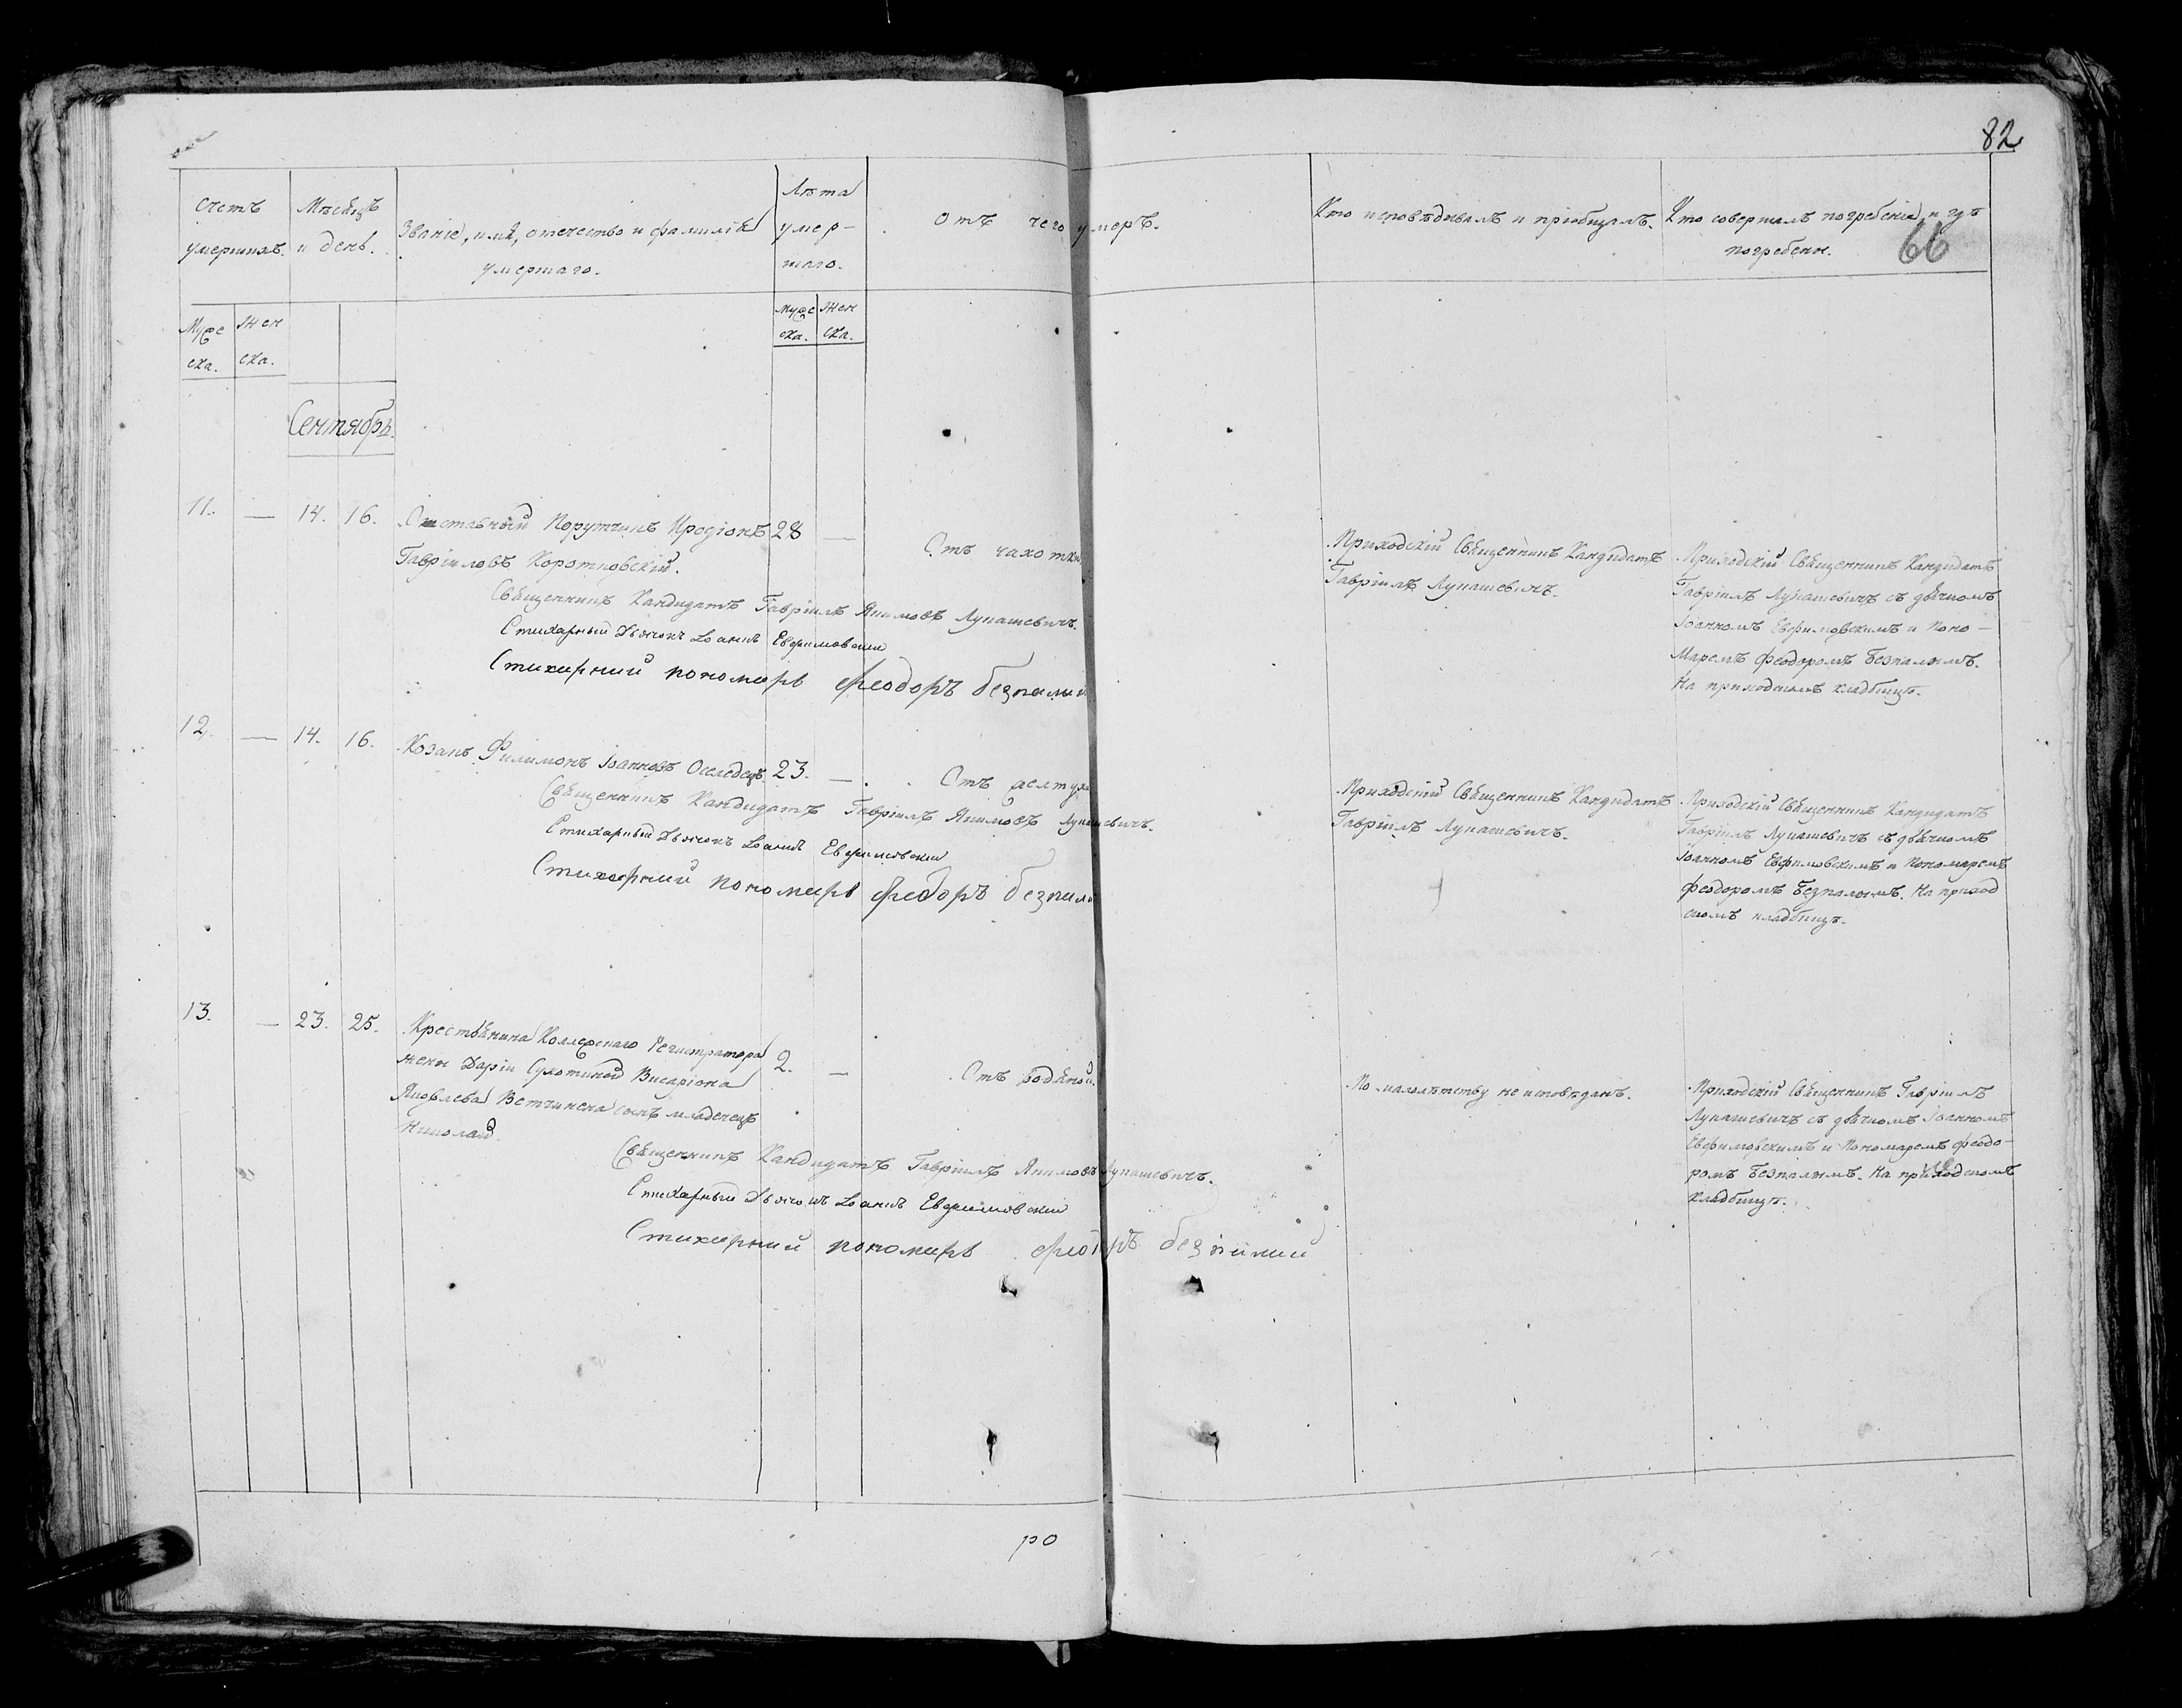 82
66
Счетъ умершихъ.
Мѣсяцъ и день.
Званіе, имя, отечество и фамилія умершаго.
Лѣта умершаго.
Отъ чего умеръ.
Кто исповѣдывалъ и пріобщалъ.
Кто совершалъ погребеніе и гдѣ погребены.
Мужеска. Женска.
Мужеска. Женска.
Сентябрь.
11. — 14. 16. Отставный Порутчикъ Иродіонъ 28 —
Гавріиловъ Коротковскій.
Отъ чахотки
Приходскій Священникъ Кандидатъ
Гавріилъ Лукашевичъ.
Приходскій Священникъ Кандидатъ
Гавріилъ Лукашевичъ съ дьячкомъ
Іоанномъ Евфимовскимъ и Поно-
маремъ Феодоромъ Безпалымъ.
На приходскомъ кладбищѣ.
Священникъ Кандидатъ Гавріилъ Якимовъ Лукашевичъ.
Стихарный Дьячокъ Іоаннъ Евфимовскій
Стихарний пономарь Феодоръ безпалий
12. — 14. 16. Козакъ Филимонъ Іоанновъ Оселедецъ 23. —
Отъ желтухи
Приходскій Священникъ Кандидатъ
Гавріилъ Лукашевичъ.
Приходскій Священникъ Кандидатъ
Гавріилъ Лукашевичъ съ дьячкомъ
Іоанномъ Евфимовскимъ и Пономаремъ
Феодоромъ Безпалымъ. На приход
скомъ кладбищѣ.
Священникъ Кандидатъ Гавріилъ Якимовъ Лукашевичъ.
Стихарный Дьячокъ Іоаннъ Евфимовскій
Стихарний пономарь Феодоръ безпали
13. — 23. 25. Крестьянина Коллежскаго Регистратора 2. —
жены Даріи Сухотиной Висаріона
Яковлева Ветчинена сынъ младенецъ
Николай.
Отъ водяной.
По малолѣтству не исповѣданъ.
Приходскій Священникъ Гавріилъ
Лукашевичъ съ дьячкомъ Іоанномъ
Евфимовскимъ и Пономаремъ Феодо-
ромъ Безпалымъ. На приходскомъ
кладбищѣ.
Священникъ Кандидатъ Гавріилъ Якимовъ Лукашевичъ.
Стихарный Дьячокъ Іоаннъ Евфимовскій
Стихарний пономарь Феодоръ безпалий
ро